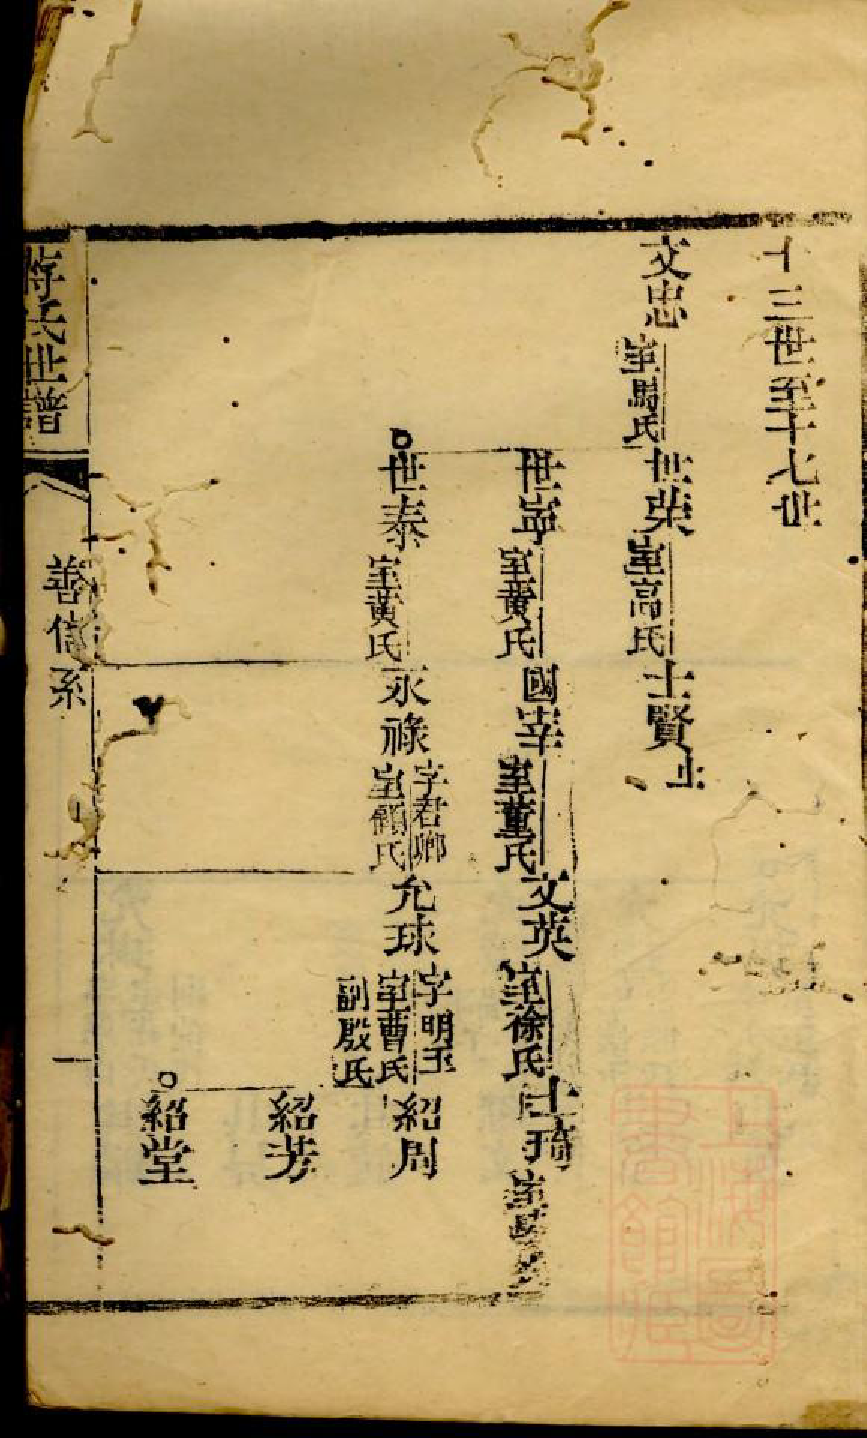 十三世至十七世
文忠 室馬氏 世榮 室高氏 士賢 止
世寧 室黃氏 國宰 室董氏 文英 室徐氏 士琦 室
世泰 室黃氏 永祿 字君卿 室顧氏 允球 字明玉 室曹氏 副殷氏 紹周
紹芳
紹堂
蔣氏世譜
善信系
一
上海圖書館藏